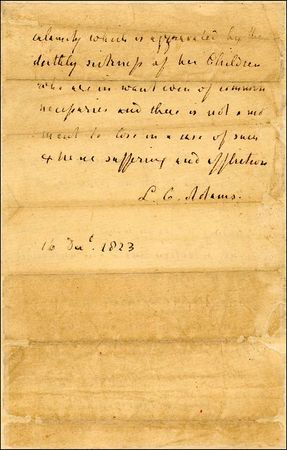 calamity which is aggravated by the
deathly sickness of her Children
who are in want even of common
necessaries and there is not a mo
ment to lose in a case of such
extreme suffering and affliction
L. C. Adams.
16 Dec.r 1823